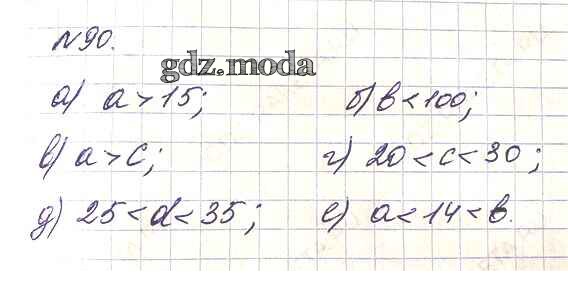 №90.
gdz.moda
а) a > 15; б) b < 100;
в) a > c; г) 20 < c < 30;
д) 25 < d < 35; е) a < 14 < b.